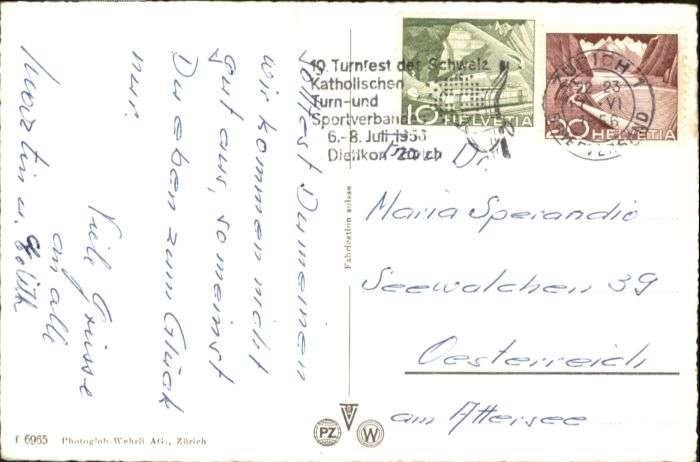 solltest Du meinen
wir kommen nicht
gut aus, so meinst
Du eben zum Glück
nur.
Viele Grüsse
an alle
Martin u. Edith
19. Turnfest des Schweiz.
Katholischen
Turn- und
Sportverbandes
6.-8. Juli 1956
Dietikon Zürich
10 HELVETIA
20 HELVETIA
ZÜRICH 1
23
VI
56
BRIEFVERSAND
Frau Dr.
Maria Sperandio
Seewalchen 39
Oesterreich
am Attersee
Fabrication suisse
PZ
W
f 6965 Photoglob-Wehrli AG., Zürich